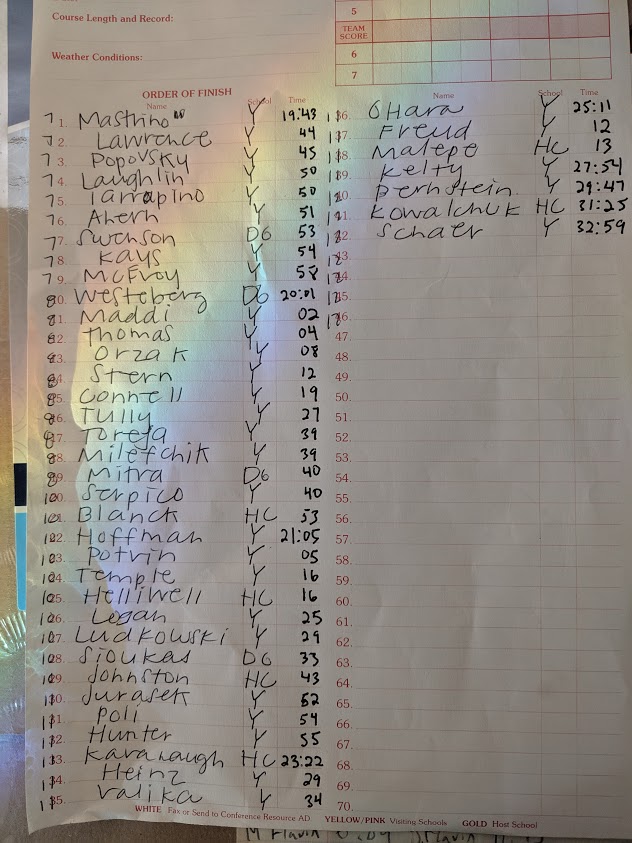 Course Length and Record:
Weather Conditions:
5
TEAM SCORE
6
7
ORDER OF FINISH
Name School Time
71. Mastrino Y 19:43
72. Lawrence Y 44
73. Popovsky Y 45
74. Laughlin Y 50
75. Tarrapino Y 50
76. Ahern Y 51
77. Swenson DG 53
78. Kays Y 54
79. McElroy Y 58
80. Westeberg DG 20:01
81. Maddi Y 02
82. Thomas Y 04
83. Orzak Y 08
84. Stern Y 12
85. Connell Y 19
86. Tully Y 27
87. Toreja Y 39
88. Milefchik Y 39
89. Mitra DG 40
100. Serpico Y 40
101. Blanck HC 53
102. Hoffman Y 21:05
103. Potvin Y 05
104. Temple Y 16
105. Helliwell HC 16
106. Logan Y 25
107. Ludkowski Y 29
108. Sioukas DG 33
109. Johnston HC 43
110. Jurasek Y 52
111. Poli Y 54
112. Hunter Y 55
113. Kavanaugh HC 23:22
114. Heinz Y 29
115. Valika Y 34
Name School Time
116. OHara Y 25:11
117. Freud Y 12
118. Malepe HC 13
119. Kelty Y 27:54
120. Bernstein Y 29:47
121. Kowalchuk HC 31:25
122. Schaer Y 32:59
123.
124.
125.
126.
47.
48.
49.
50.
51.
52.
53.
54.
55.
56.
57.
58.
59.
60.
61.
62.
63.
64.
65.
66.
67.
68.
69.
70.
WHITE Fax or Send to Conference Resource AD YELLOW/PINK Visiting Schools GOLD Host School